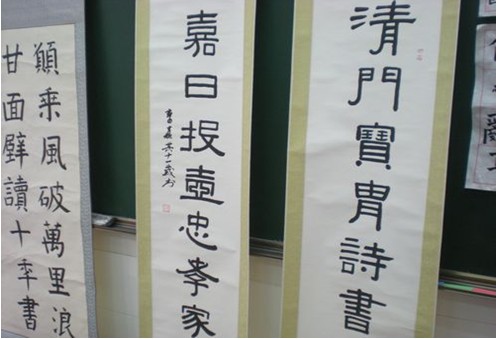 清門寶胄詩書
嘉日投壺忠孝家
願乘風破萬里浪
甘面壁讀十年書